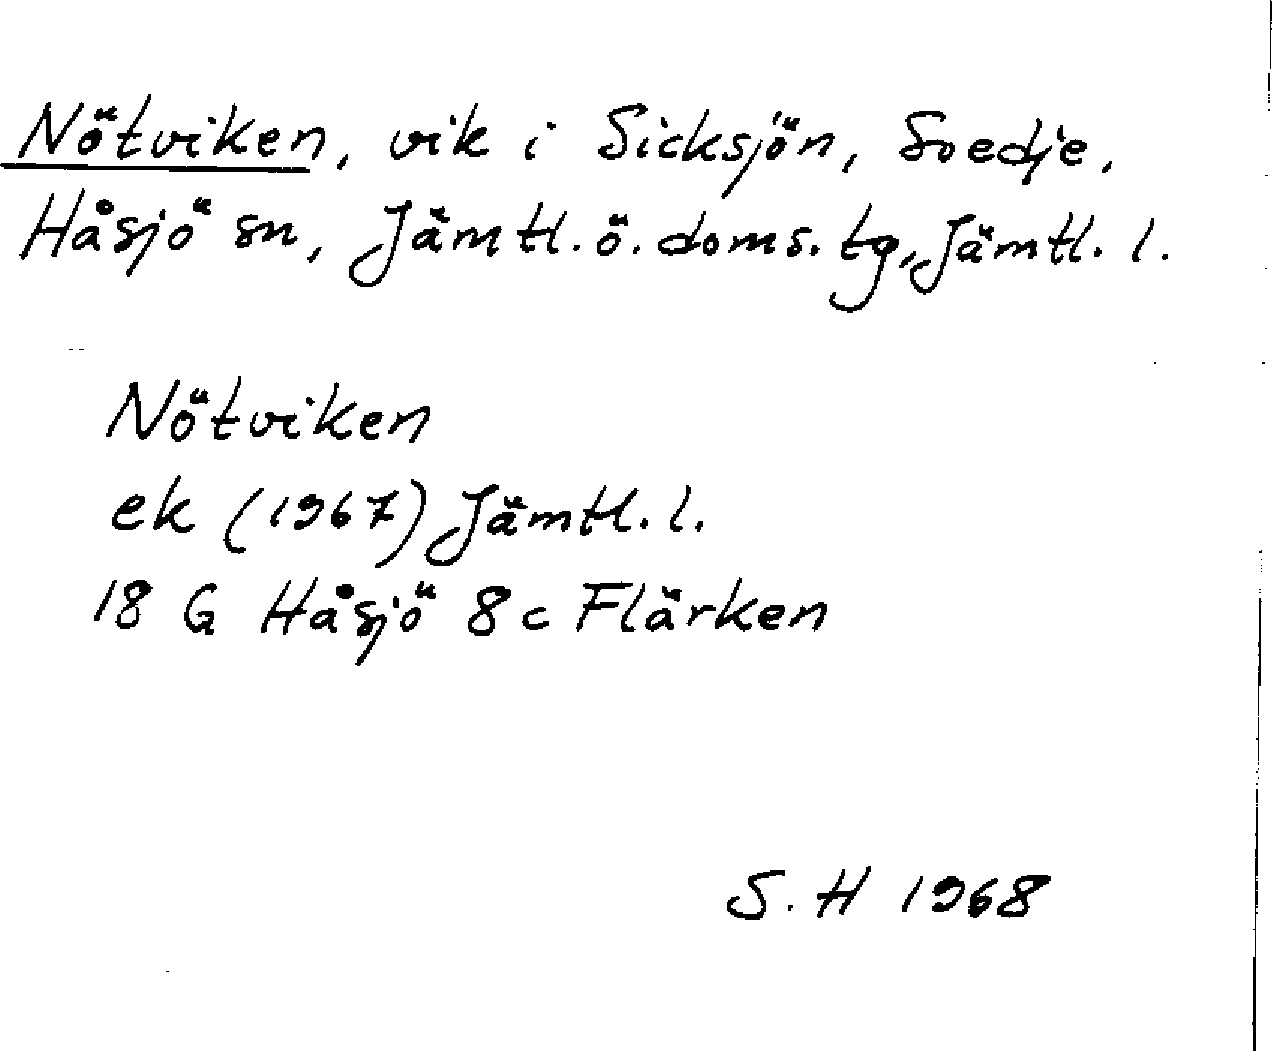 Nötviken, vik i Sicksjön, Svedje,
Håsjö sn, Jämtl. ö. doms. tg, Jämtl. l.
Nötviken
ek (1967) Jämtl. l.
18 G Håsjö 8 c Flärken
S. H 1968